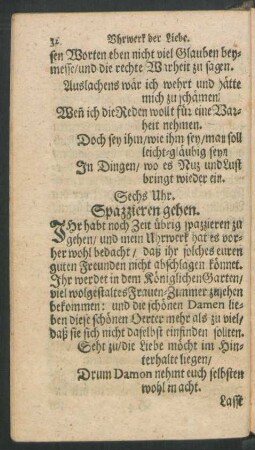 32 Uhrwerk der Liebe.
sen Worten eben nicht viel Glauben bey-
messe/und die rechte Warheit zu sagen.
Auslachens wär ich wehrt und hätte
mich zu schämen/
Weñ ich die Reden wollt für eine War-
heit nehmen.
Doch sey ihm/wie ihm sey/man soll
leicht-gläubig seyn
In Dingen/ wo es Nuz und Lust
bringt wieder ein.
Sechs Uhr.
Spazzieren gehen.
IHr habt noch Zeit übrig spazzieren zu
gehen/ und mein Uhrwerk hat es vor-
her wohl bedacht/ daß ihr solches euren
guten Freunden nicht abschlagen könnet.
Ihr werdet in dem Königlichen Garten/
viel wolgestaltes Frauen-Zimmer zusehen
bekommen: und die schönen Damen lie-
ben diese schönen Oerter mehr als zu viel/
daß sie sich nicht daselbst einfinden sollten.
Seht zu/die Liebe möcht im Hin-
terhalte liegen/
Drum Damon nehmt euch selbsten
wohl in acht.
Lasst